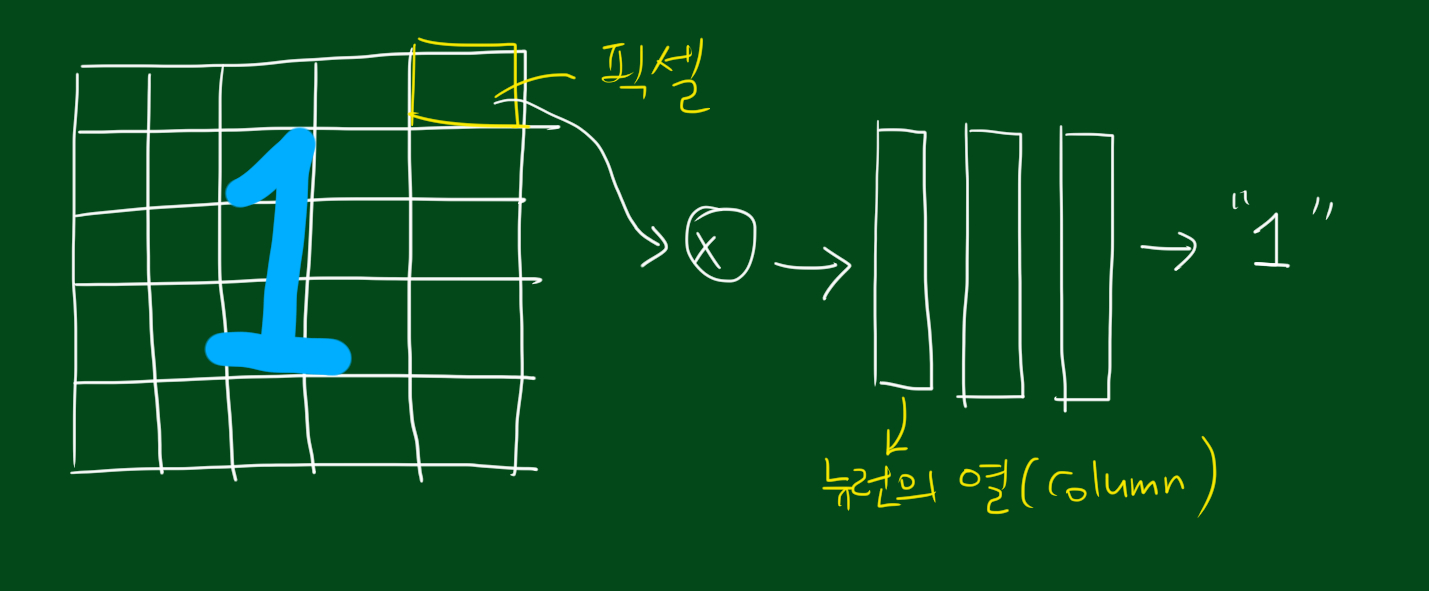 1
픽셀
x
"1"
뉴런의 열(column)